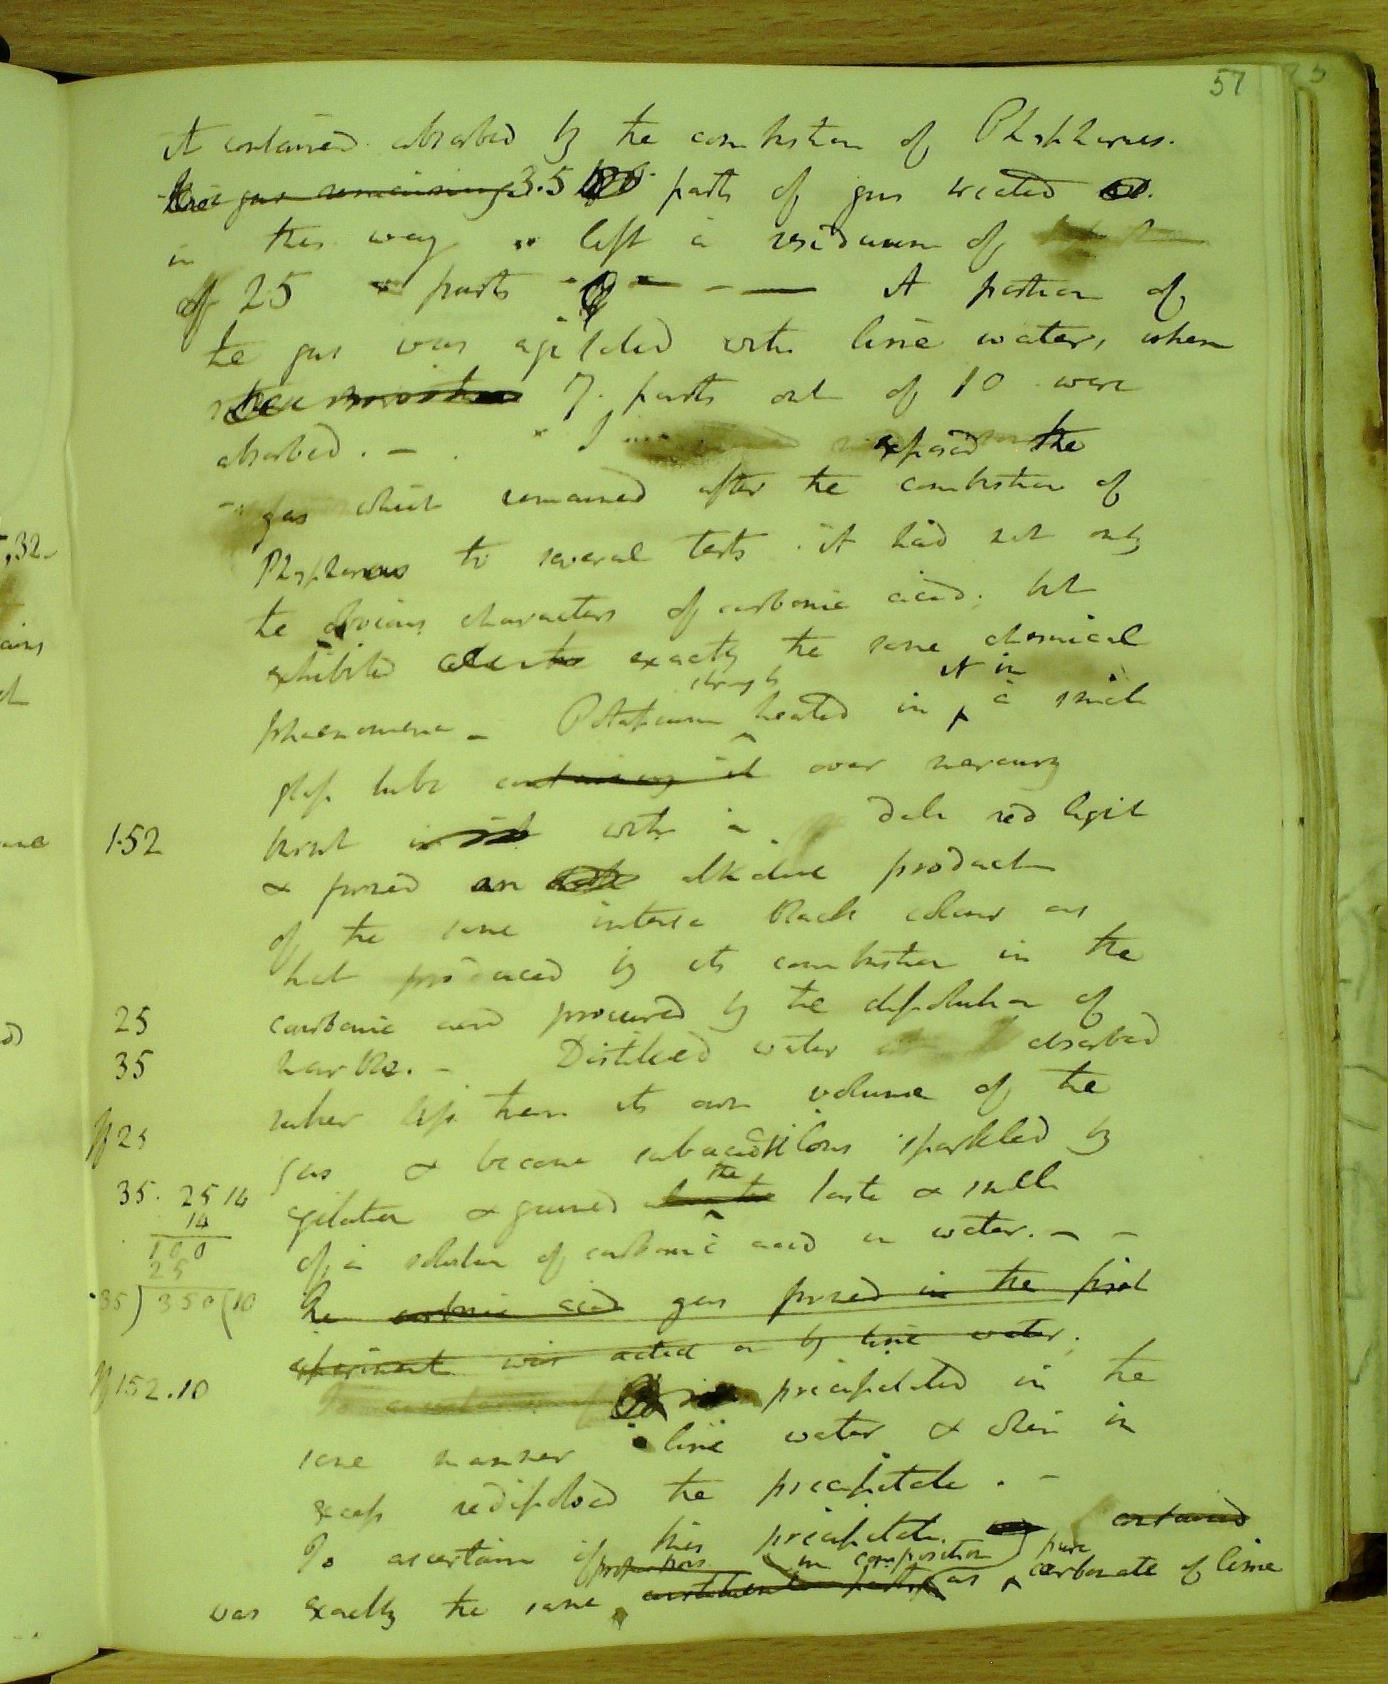 57
it contained absorbed by the combustion of Phosphorus.
the gas remaining 3.5 parts of gas treated
in this way left a residuum of
of 25 parts — — A portion of
the gas was agitated with lime water, when
7. parts out of 10 were
absorbed. — I exposed the
gas which remained after the combustion of
Phosphorus to several tests. it had not only
the obvious characters of carbonic acid; but
exhibited exactly the same chemical
phaenomena — Potassium strongly heated in it in a small
glass tube containing it over mercury
burnt with a dull red light
& formed an alkaline product
of the same intense black colour as
that produced by its combustion in the
carbonic acid procured by the dissolution of
marble. — Distilled water absorbed
rather less than its own volume of the
gas & became subacidulous sparkled by
agitation & gained the taste & smell
of a solution of carbonic acid in water. — —
The carbonic acid gas formed in the first
experiment was acted on by lime water.
precipitated in the
same manner lime water & when in
excess redissolved the precipitate. —
To ascertain if this precipitate contained
proportions in composition pure
was exactly the same as carbonate of lime
1.52
25
35
25
35. 25 14
14
100
25
35) 350 (10
152.10
,32